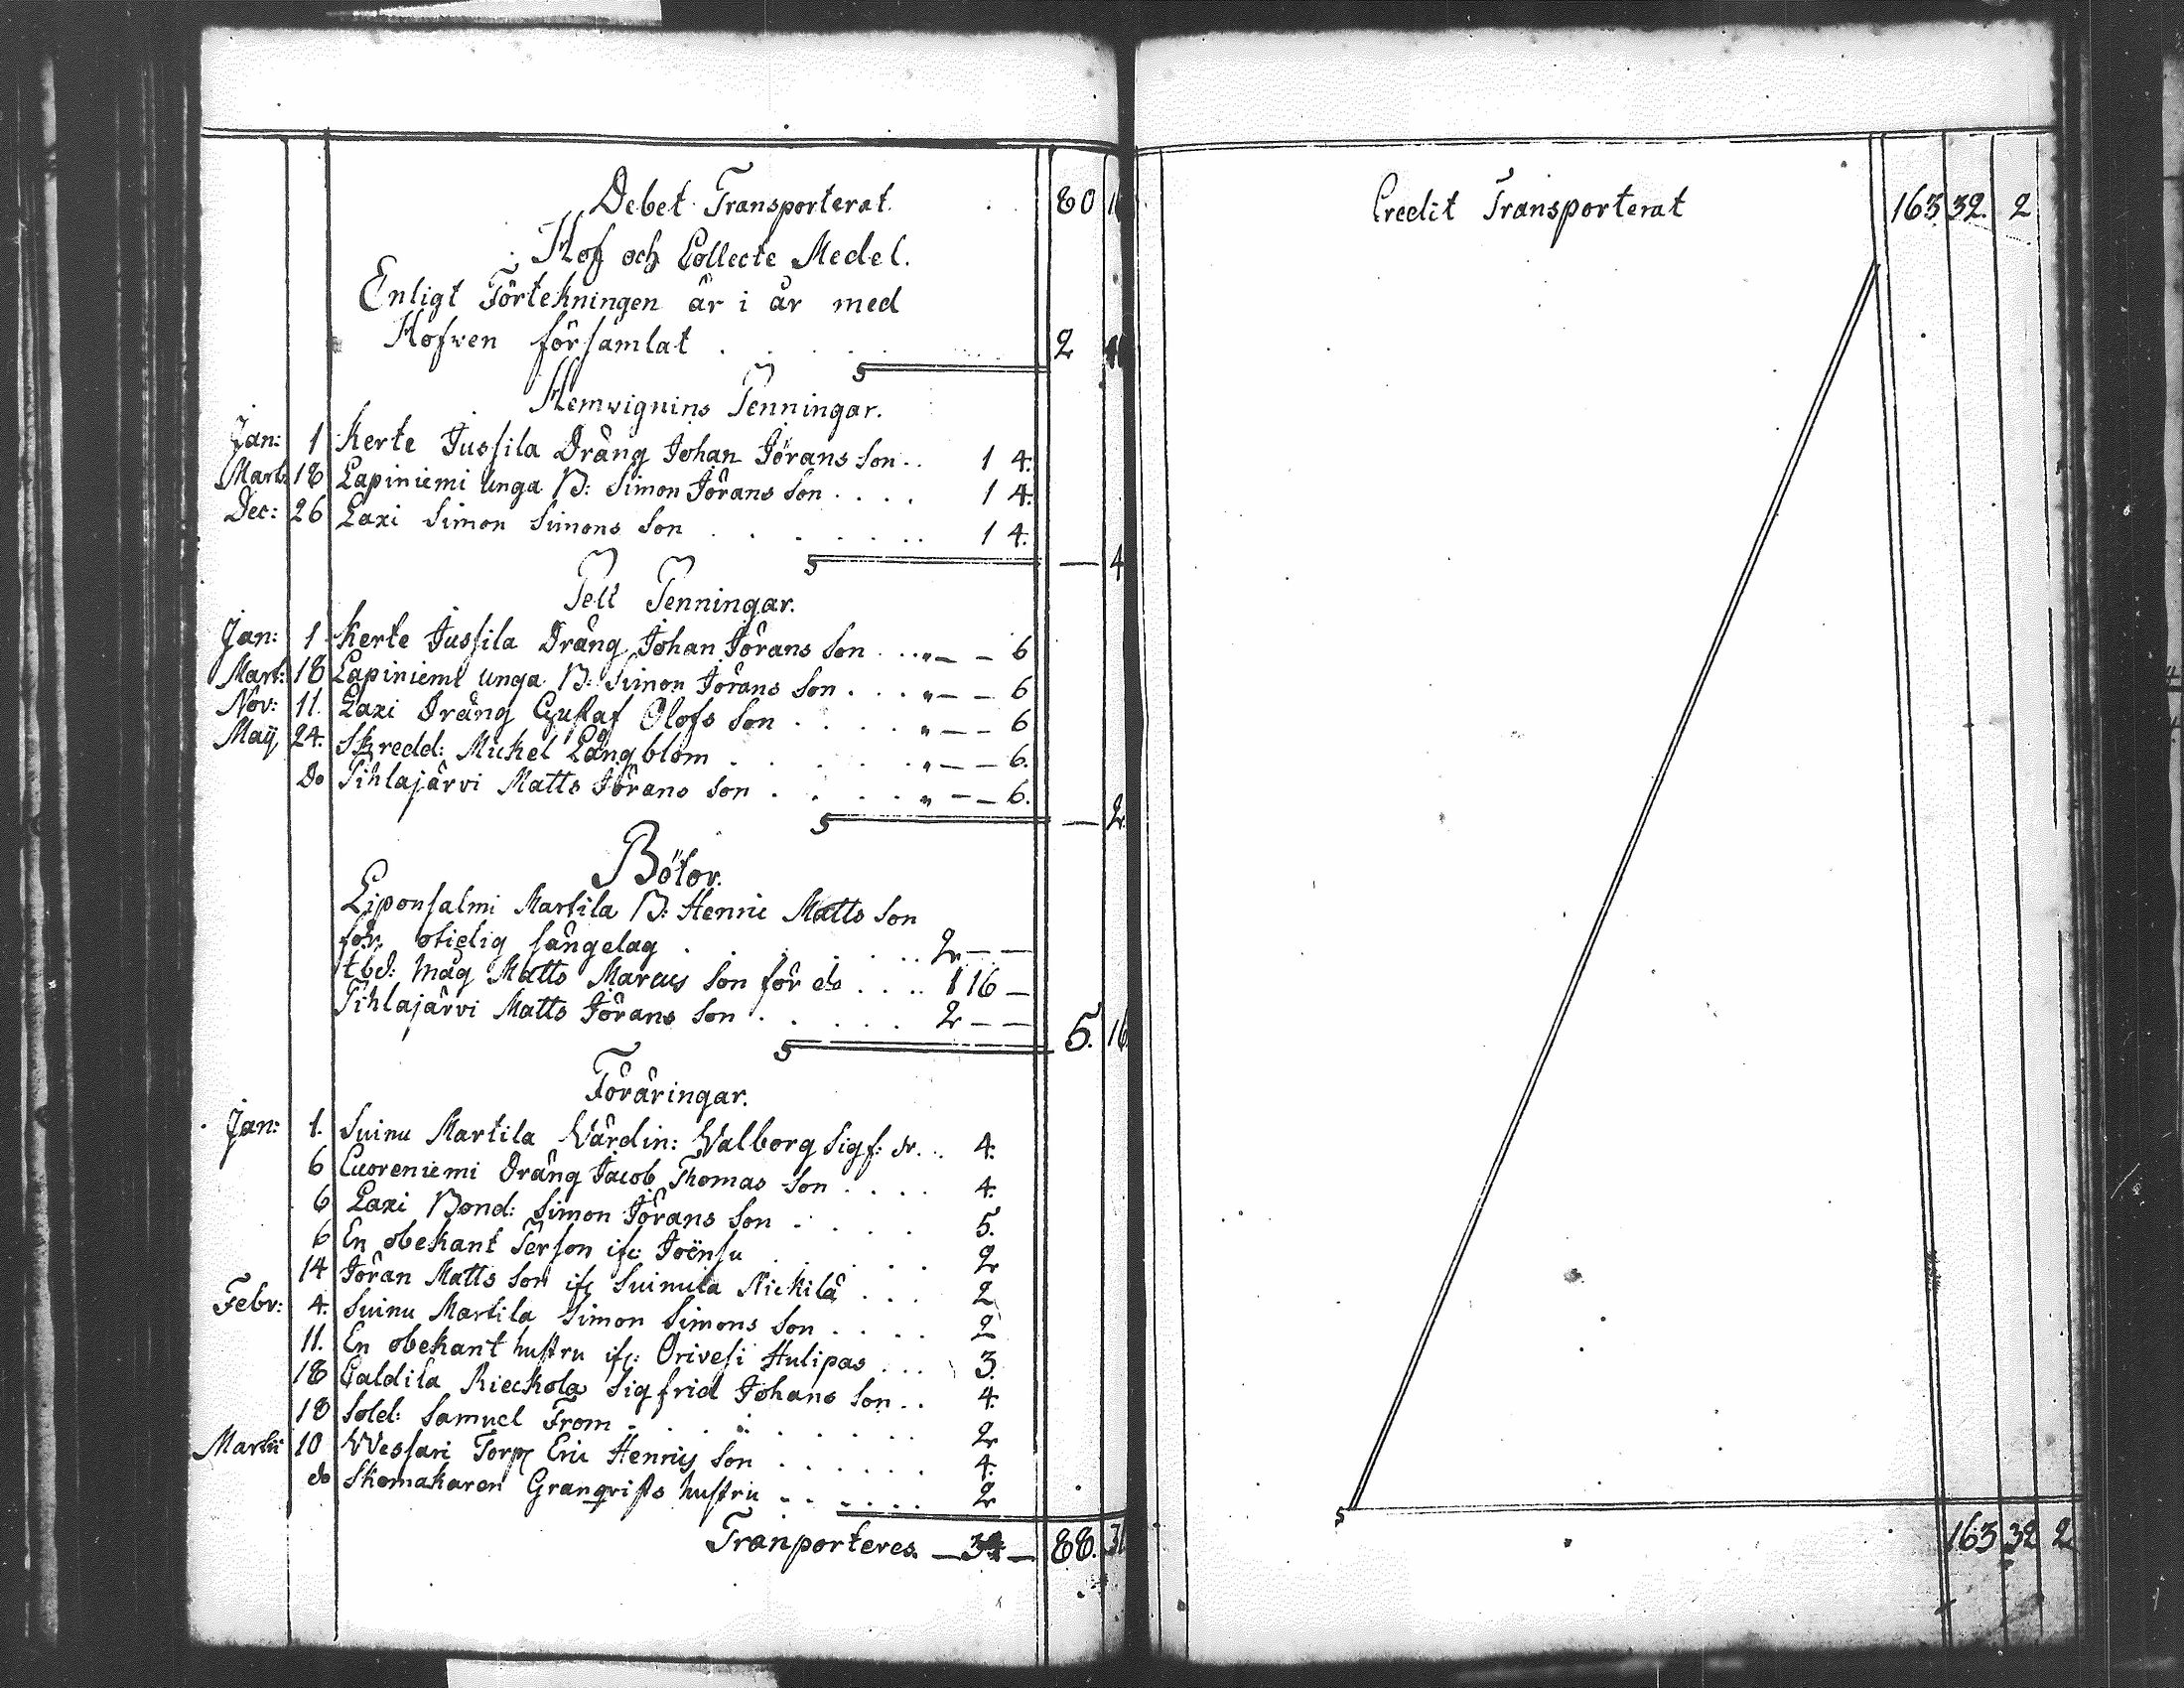 Debet Transporterat . . 80
Håf och Collecte Medel.
Enligt Förtekningen är i år med
Håfwen församlat . . . . 2
Hemvignins Penningar.
Jan: 1 Kerte Jussila Dräng Johan Jörans Son . . 1 4.
Mart: 18 Lapiniemi unga B: Simon Jörans Son . . . . 1 4.
Dec: 26 Laxi Simon Simons Son . . . . . 1 4.
— 4
Pell Penningar.
Jan: 1 Kerte Jussila Dräng Johan Jörans Son . . . „ — — 6
Mart: 18 Lapiniemi unga B: Simon Jörans Son . . . „ — — 6
Nov: 11. Laxi Dräng Gustaf Olofs Son . . . . „ — — 6
Maij 24. Skredd: Mickel Långblom . . . . . „ — — 6.
Do Pihlajärvi Matts Jörans Son . . . . . „ — — 6.
— 2
Böter.
Liponsalmi Martila B: Henric Matts Son
för otidig sängelag . . . . . . 2 — —
ibd: Måg Matts Marcus Son för do . . . . 1 16 —
Pihlajärvi Matts Jörans Son . . . . . 2 — —
5. 16
Föräringar.
Jan: 1. Suinu Martila Wärdin: Walborg Sigf: dr. . . 4.
6 Cuoreniemi Dräng Jacob Thomas Son . . . . 4.
6 Laxi Bond: Simon Jörans Son . . . . 5.
6 En obekant Person ifr: Joënsu . . . . . 2
14 Jöran Matts Son ifr Suinula Nickilä . . . 2
Febr: 4. Suinu Martila Simon Simons Son . . . . . 2
11. En obekant hustru ifr: Orivesi Hulipas . . . 3.
18 Caldila Rieckola Sigfrid Johans Son . . 4.
18 Sold: Samuel From . . . . . . . . 2
Martii 10 Wessari Torp: Eric Henrics Son . . . . . . 4.
do Skomakaren Granqvists hustru . . . . . . 2
Tranporteres. — 34 — 88.
Credit Transporterat 163 32. 2
163 32 2